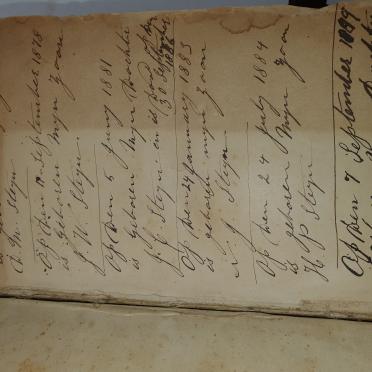 A. M. Steyn
Op Den 10 September 1878
is geboren myn zoon
J. W. Steyn
Op Den 5 Juny 1881
is geboren myn Dochter
J. C. Steyn en is Dood op den
30 September
1882
Op Den 24 January 1883
is geboren myn zoon
Steyn
Op Den 24 July 1884
is geboren Myn Zoon
H P Steyn
Op Den 7 September 1899